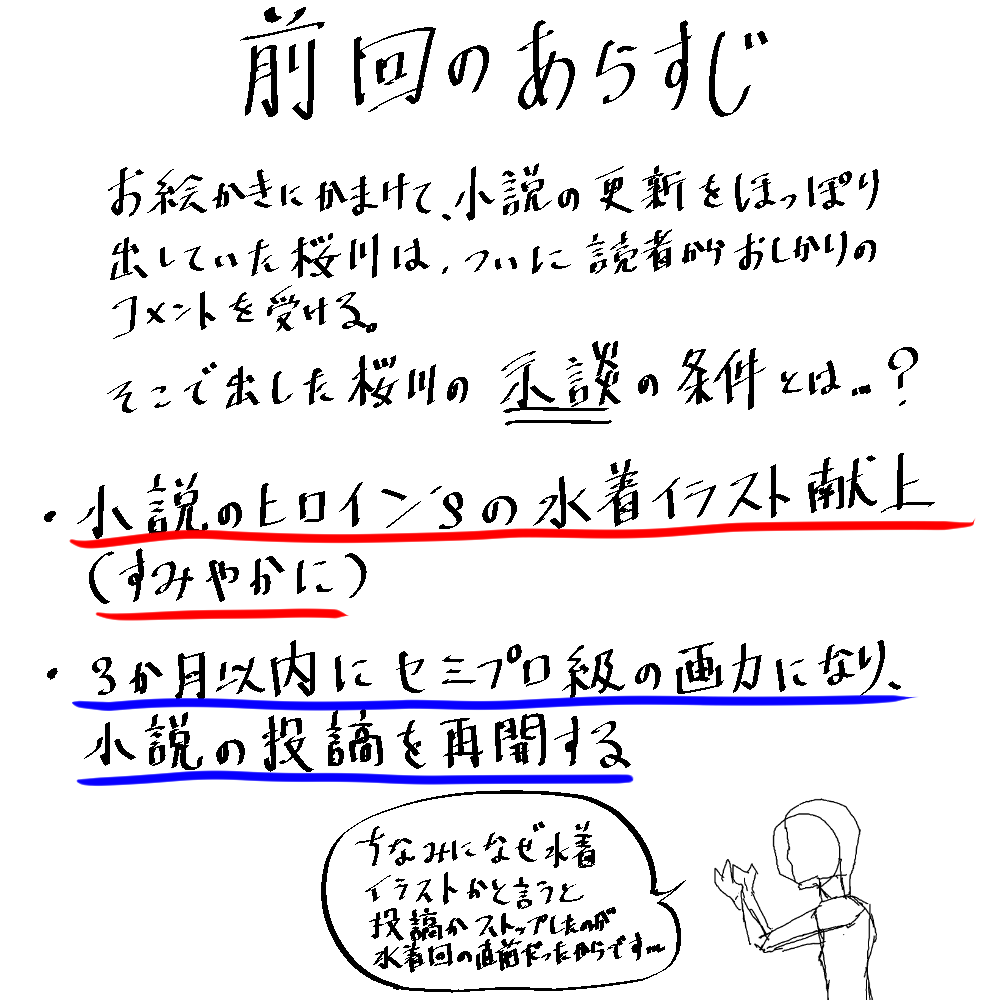 前回のあらすじ
お絵かきにかまけて、小説の更新をほっぽり
出していた桜川は、ついに読者からおしかりの
コメントを受ける。
そこで出した桜川の示談の条件とは…?
・小説のヒロイン'sの水着イラスト献上
(すみやかに)
・3か月以内にセミプロ級の画力になり、
小説の投稿を再開する
ちなみになぜ水着
イラストかと言うと
投稿がストップしたのが
水着回の直前だったからです…